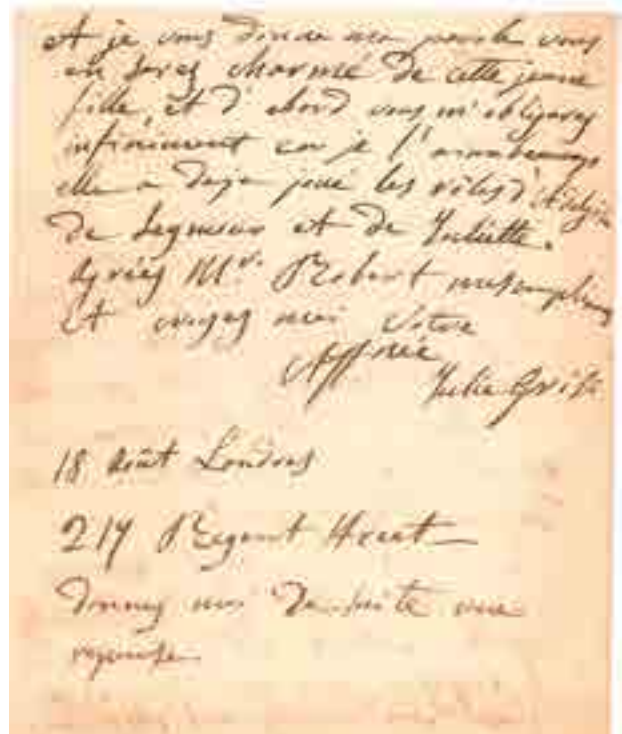 et je vous donne ma parole vous
en serez charmé de cette jeune
fille, et d'abord vous m'obligerez
infiniment car je l'
elle a deja joué les rôles d'
de Seymour et de Juliette.
Agréez Mr. Robert mes
et croyez moi Votre
Affnée
Julie Grisi
18 Août Londres
Regent Street
donnez moi de suite une
reponse